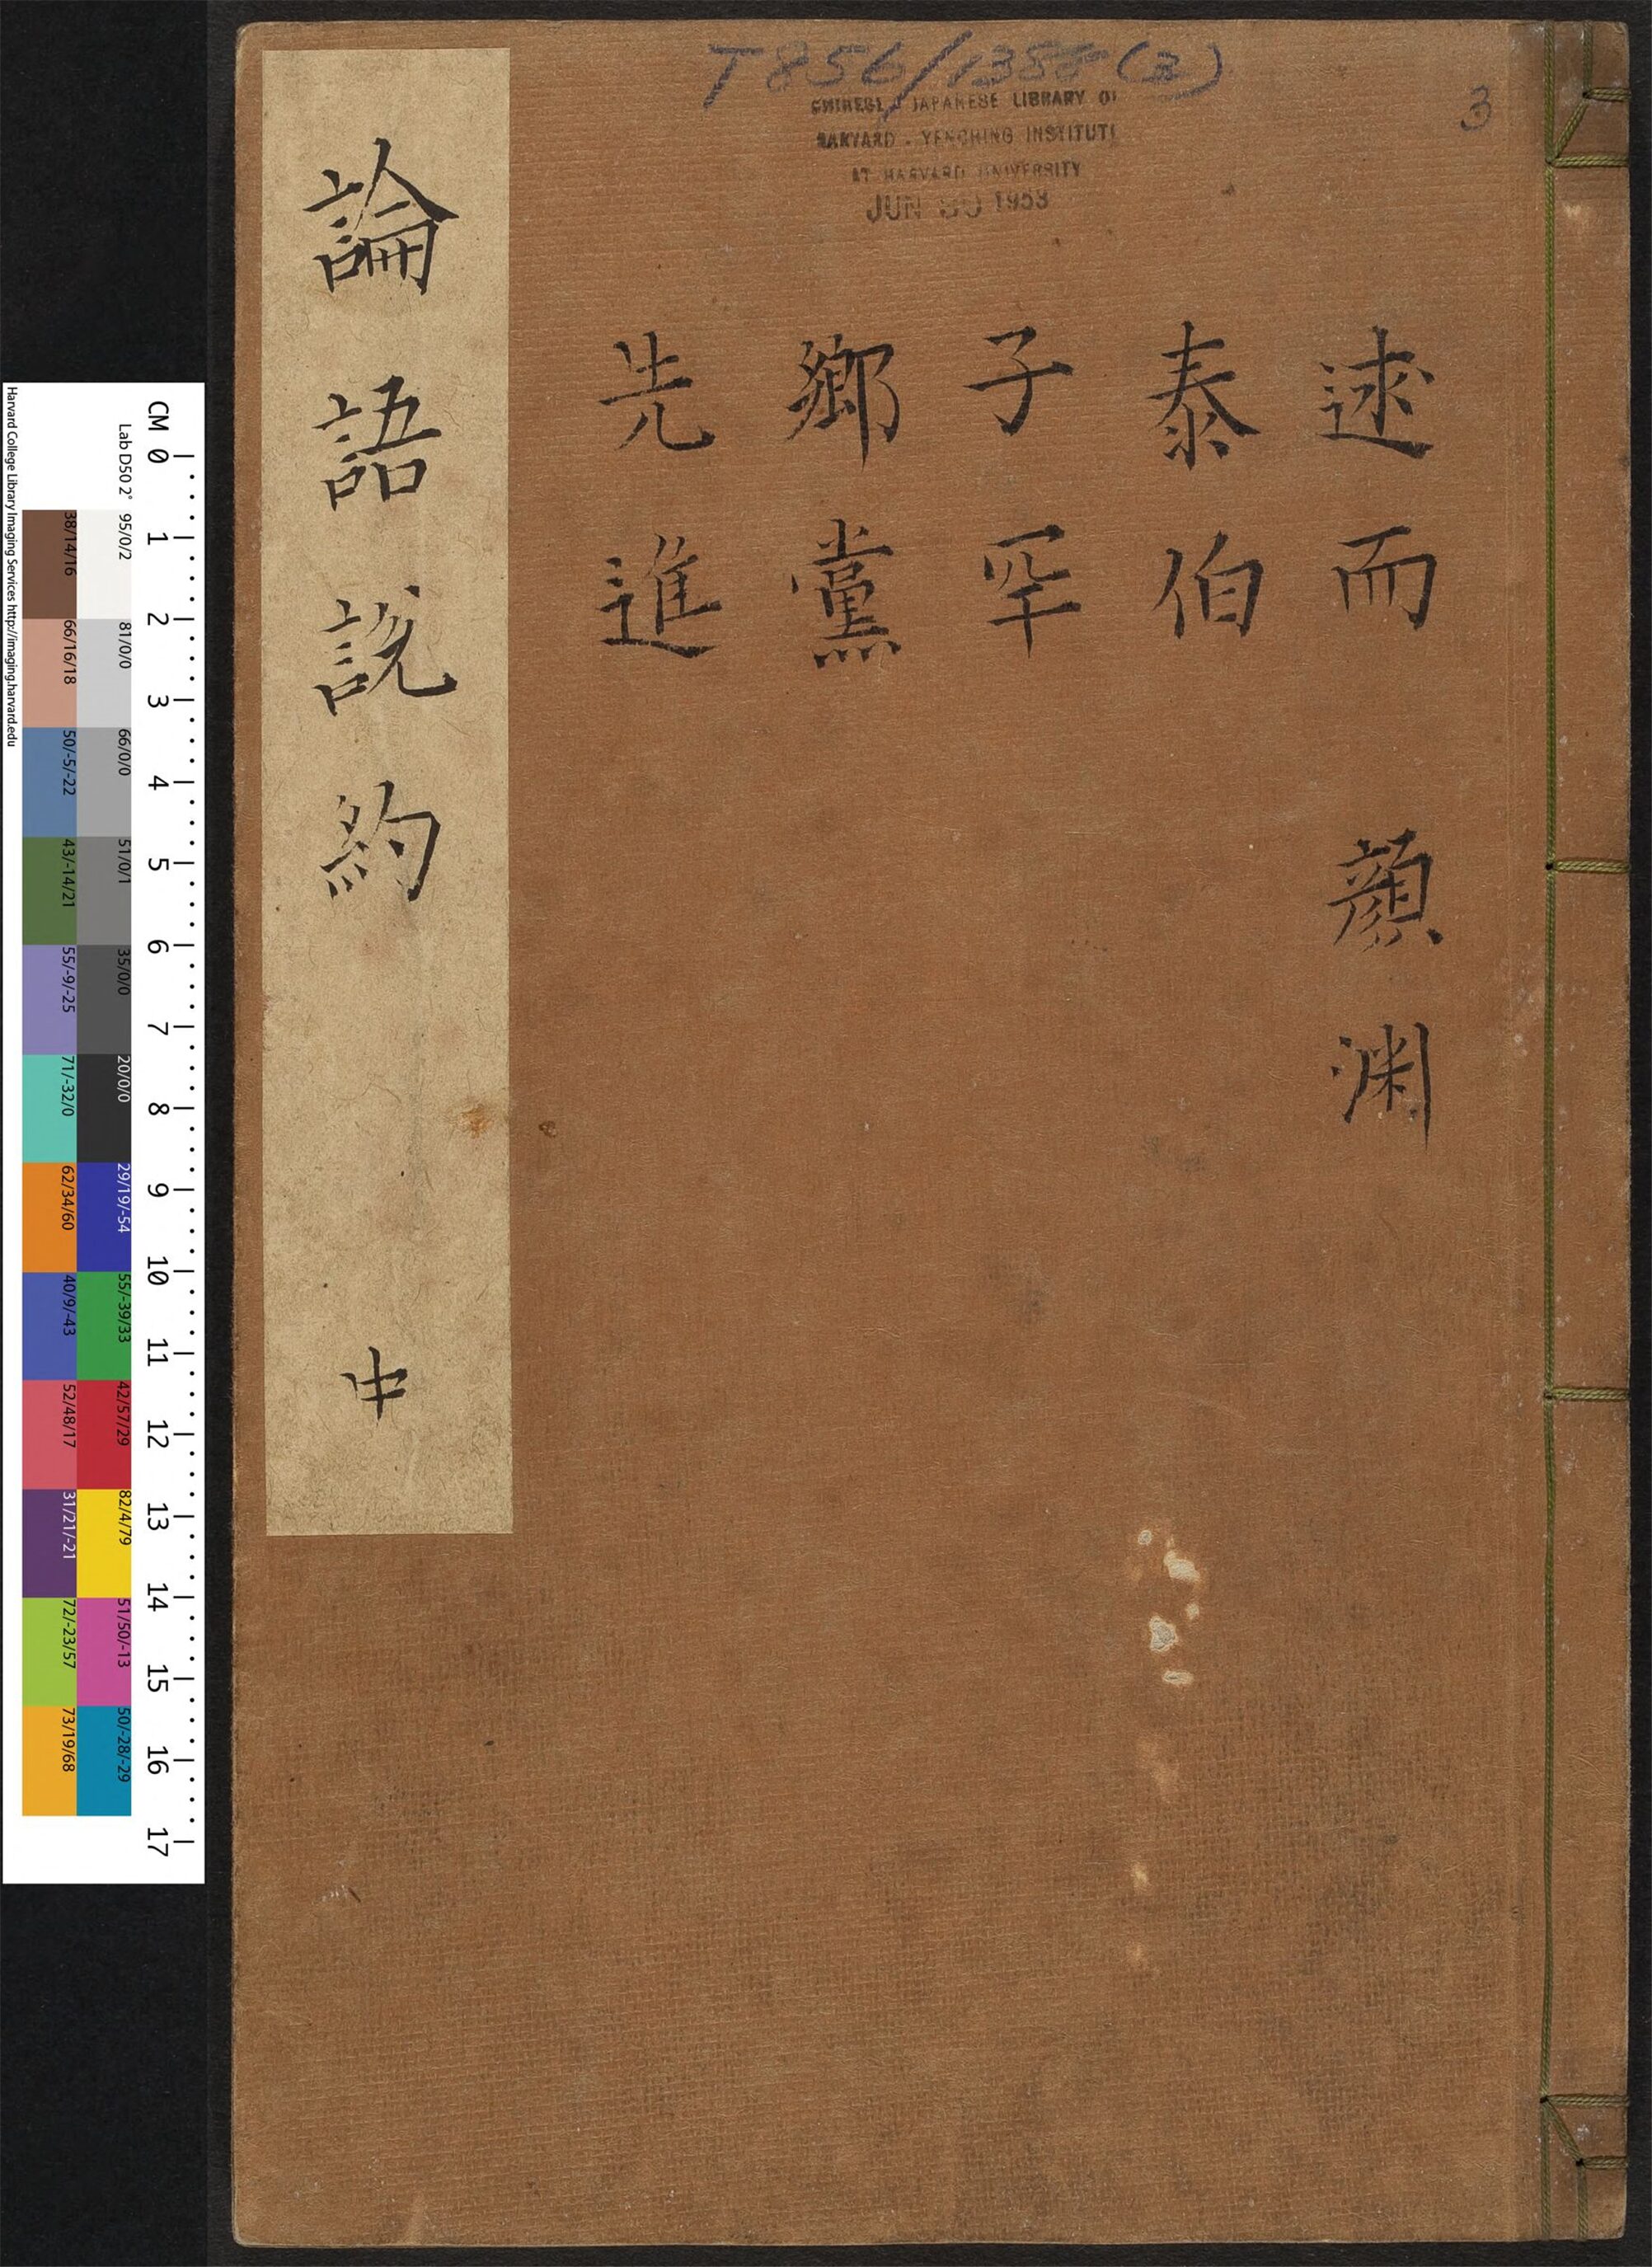 T856/1355(3)
CHINESE - JAPANESE LIBRARY OF
HARVARD - YENCHING INSTITUTE
AT HARVARD UNIVERSITY
JUN 30 1953
3
述而 顔渊
泰伯
子罕
鄉黨
先進
論語說約 中
CM 0 1 2 3 4 5 6 7 8 9 10 11 12 13 14 15 16 17
Lab D50 2° 95/0/2 81/0/0 66/0/0 51/0/1 35/0/0 20/0/0 29/19/-54 55/-39/33 42/57/29 82/4/79 51/50/-13 50/-28/-29
38/14/16 66/16/18 50/-5/-22 43/-14/21 55/-9/-25 71/-32/0 62/34/60 40/9/-43 52/48/17 31/21/-21 72/-23/57 73/19/68
Harvard College Library Imaging Services http://imaging.harvard.edu